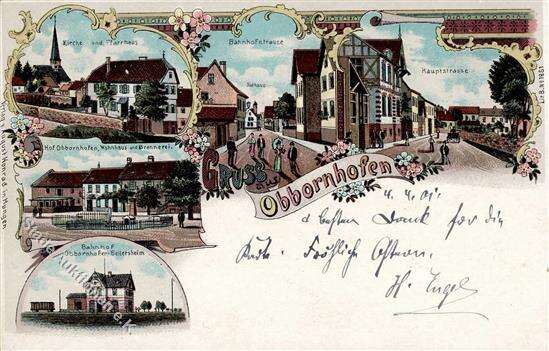 Kirche und Pfarrhaus
Bahnhofstrasse
Rathaus
Hauptstrasse
Hof Obbornhofen, Wohnhaus und Brennerei.
Gruss
aus
Obbornhofen
Bahnhof
Obbornhofen-Bellersheim
4. 4. 01.
besten Dank für die
Karte. Fröhliche Ostern.
H. Engel